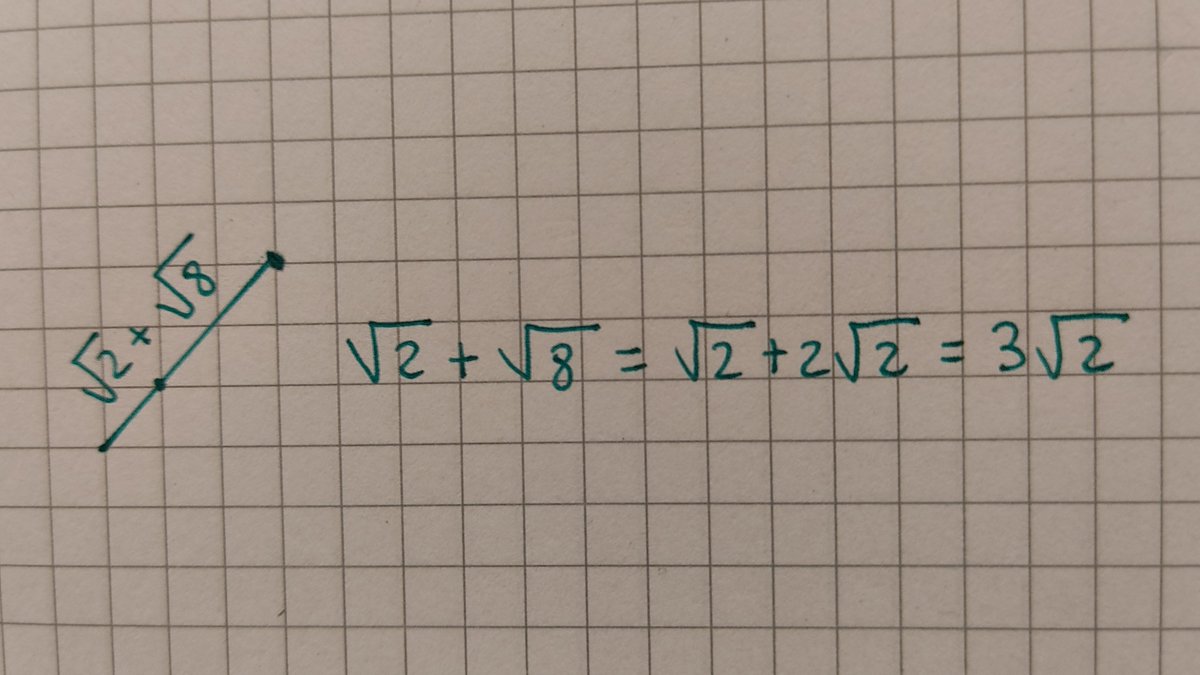 √2 + √8
√2 + √8 = √2 + 2√2 = 3√2